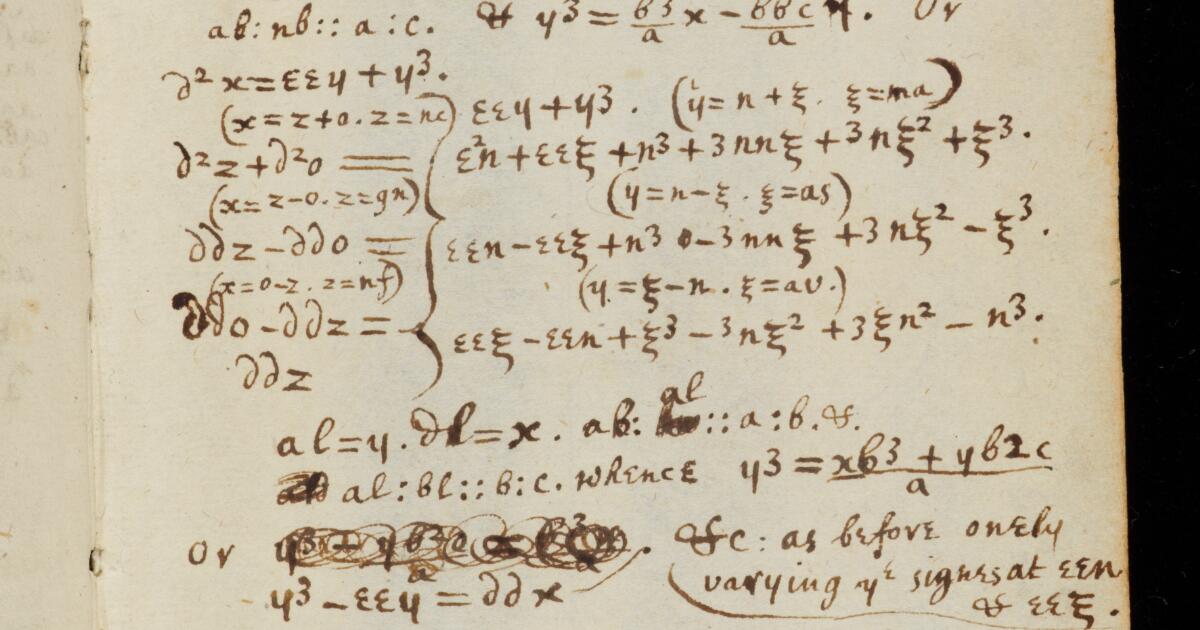 ab : nb :: a : c. & y³ = b3/a x − bbc/a . Or
∂² x = εεy + y³.
(x = z + o. z = nc) εεy + y³. (y = n + ξ. ξ = ma)
∂²z + ∂²o = ε²n + εεξ + n³ + 3nnξ + 3nξ² + ξ³.
(x = z − o. z = gn) (y = n − ξ. ξ = as)
∂∂z − ∂∂o = εεn − εεξ + n³ − 3nnξ + 3nξ² − ξ³.
(x = o − z. z = nf) (y = ξ − n. ξ = av.)
∂∂o − ∂∂z = εεξ − εεn + ξ³ − 3nξ² + 3ξn² − n³.
∂∂z
al = y. ∂l = x. ab : al :: a : b. &.
al : bl :: b : c. whence y3 = xb³ + yb2c / a
Or . &c : as before onely
varying yᵉ signes at εεn
y³ − εεy = ∂∂x & εεξ.